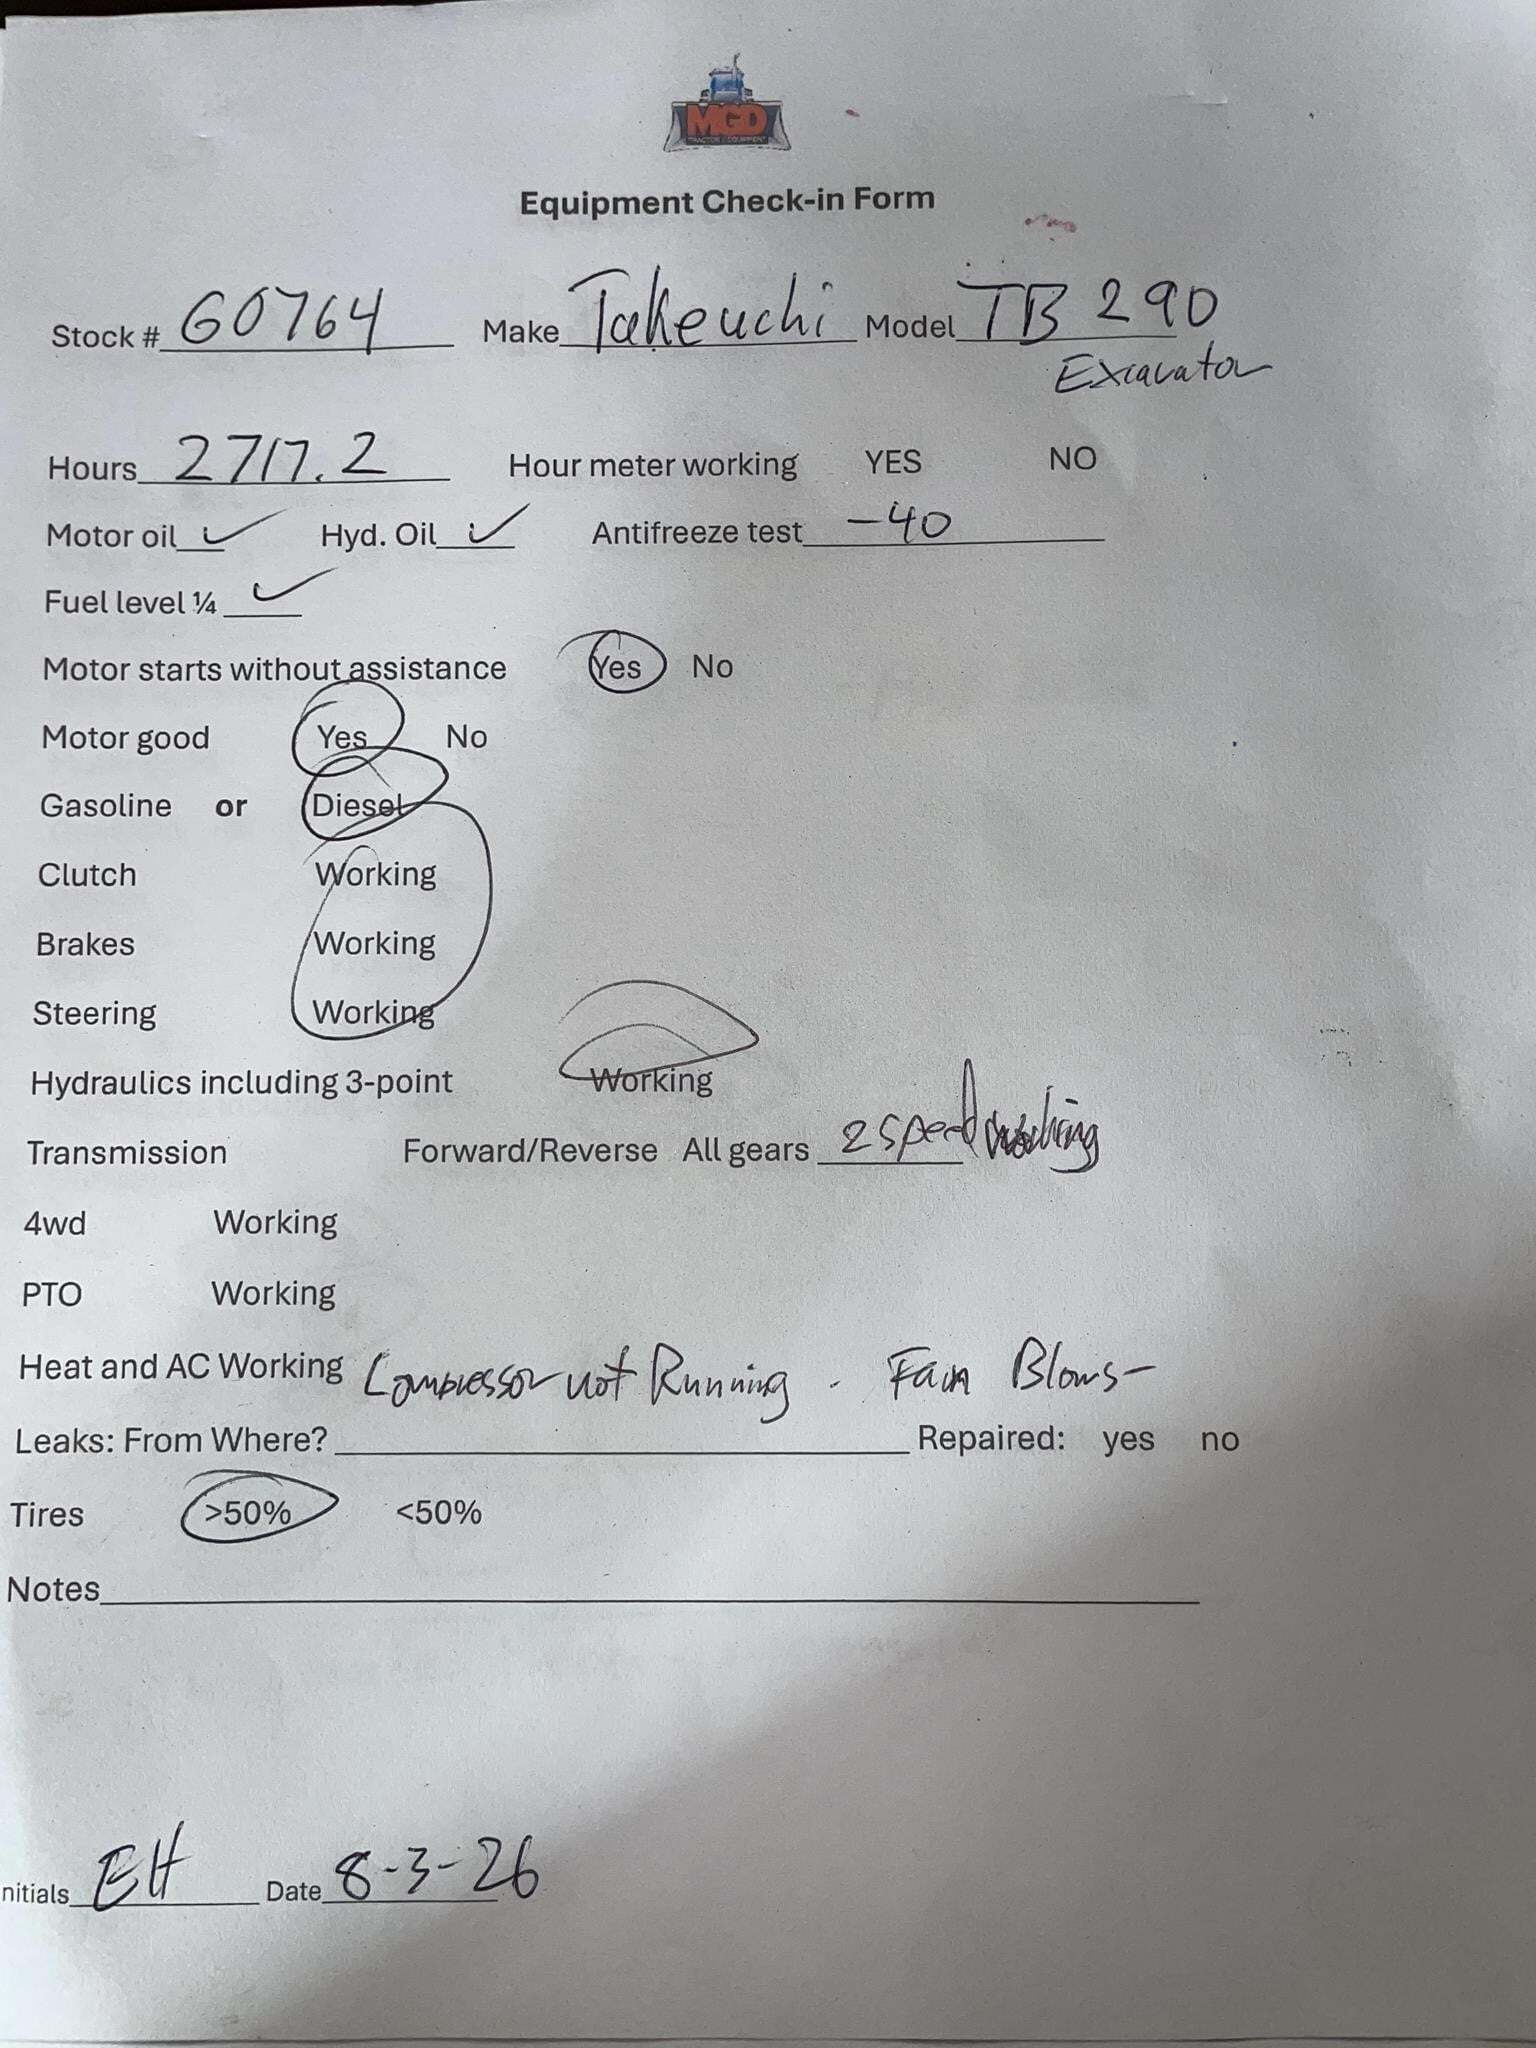 MGD
TRACTOR & EQUIPMENT
Equipment Check-in Form
Stock # G0764 Make Takeuchi Model TB 290
Excavator
Hours 2717.2 Hour meter working YES NO
Motor oil ✓ Hyd. Oil ✓ Antifreeze test -40
Fuel level ¼ ✓
Motor starts without assistance Yes No
Motor good Yes No
Gasoline or Diesel
Clutch Working
Brakes Working
Steering Working
Hydraulics including 3-point Working
Transmission Forward/Reverse All gears 2 speed working
4wd Working
PTO Working
Heat and AC Working Compressor not Running - Fan Blows -
Leaks: From Where? Repaired: yes no
Tires >50% <50%
Notes
nitials EH Date 8-3-26